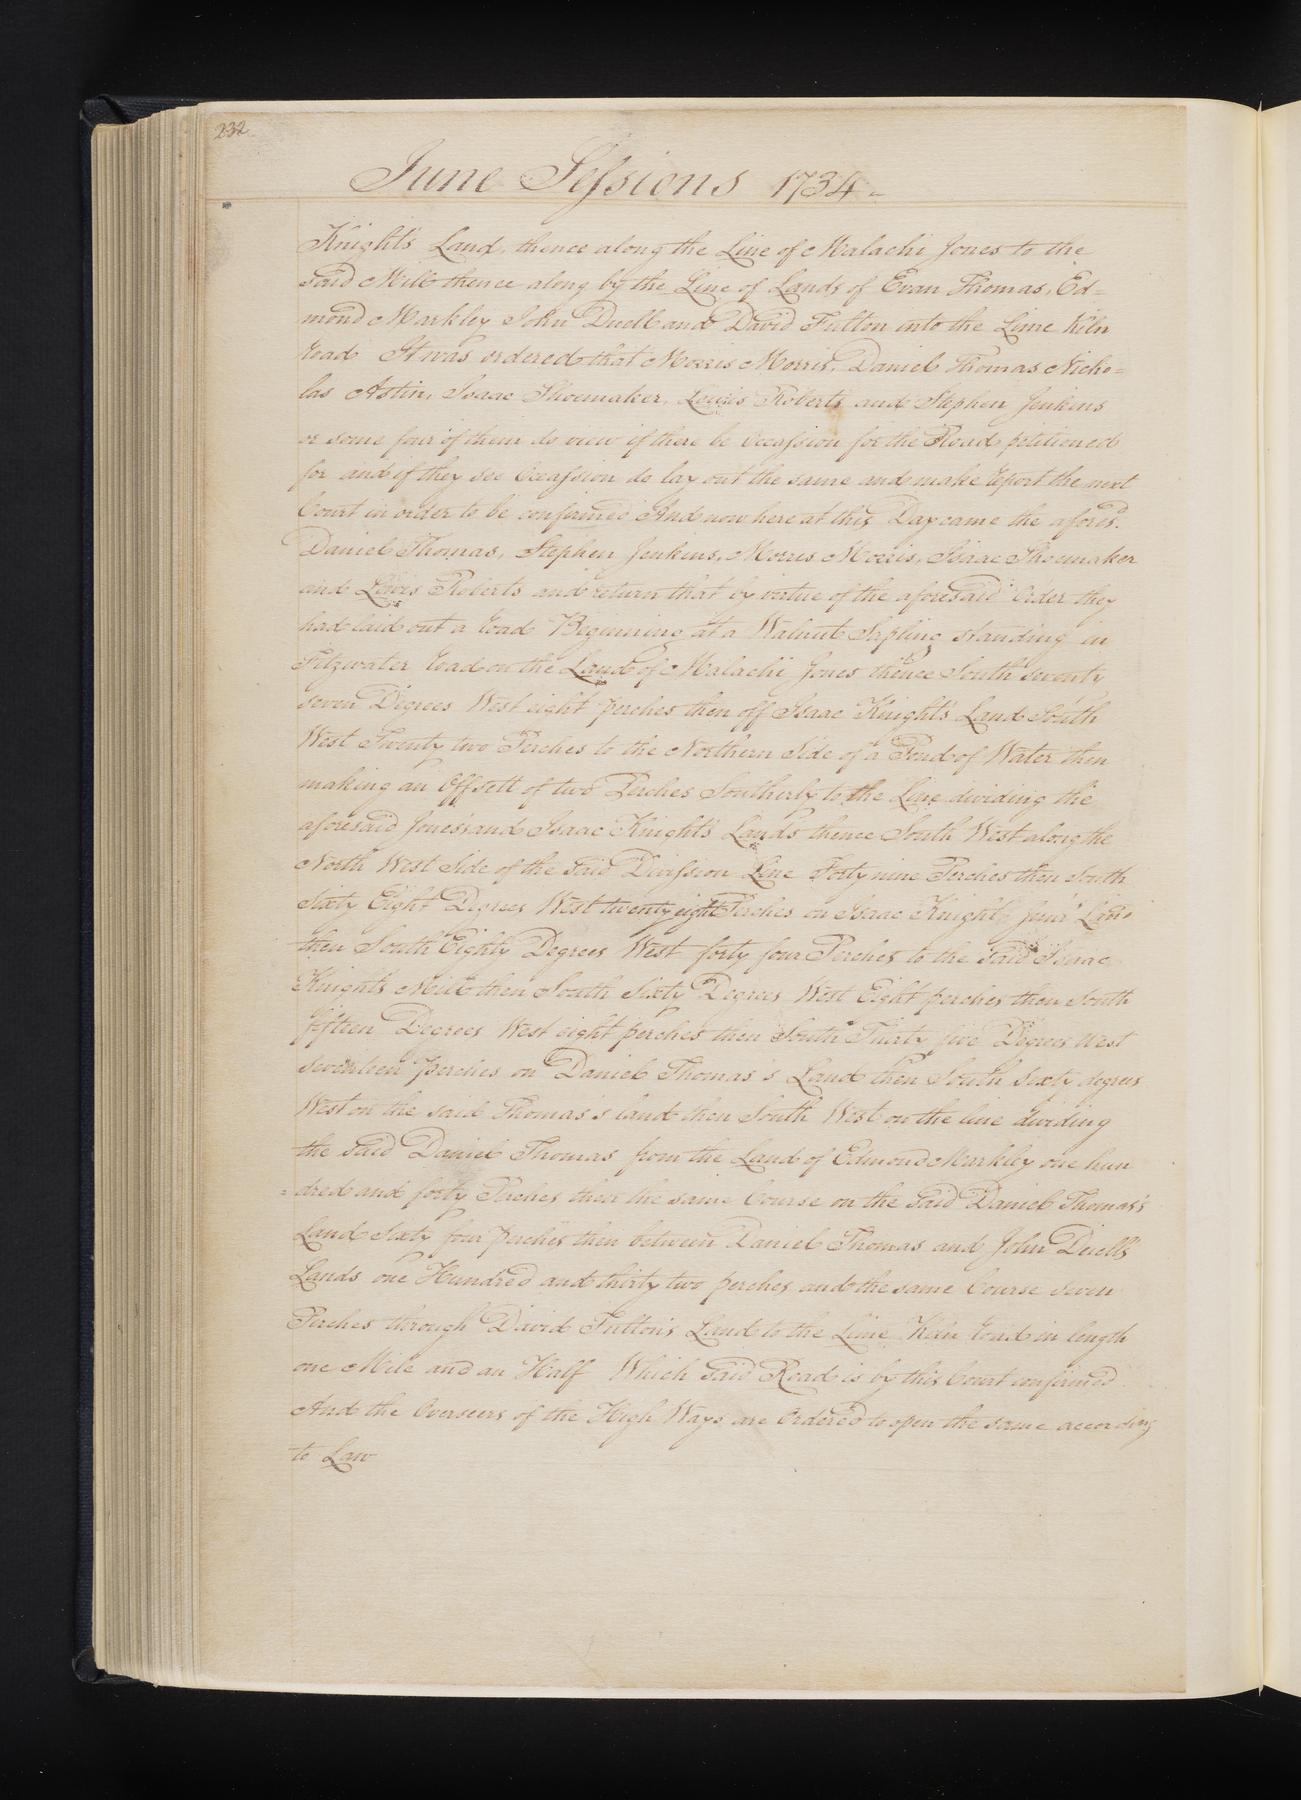 232
June Sessions 1734-
Knight's Land, thence along the Line of Malachi Jones to the
said Mill thence along by the Line of Lands of Evan Thomas, Ed=
mond Markley John Duell and David Fulton into the Lime Kiln
road It was ordered that Morris Morris, Daniel Thomas Nicho=
las Astin, Isaac Shoemaker, Lewis Roberts and Stephen Jenkins
or some four of them do view if there be Occassion for the Road petitioned
for and if they see Occassion do lay out the same and make report the next
Court in order to be confirmed And now here at this Day came the afores.d
Daniel Thomas, Stephen Jenkins, Morris Morris, Isaac Shoemaker
and Lewis Roberts and return that by virtue of the aforesaid Order they
had laid out a road Beginning at a Walnut Sapling standing in
Fitzwater road on the Land of Malachi Jones thence South seventy
seven Degrees West eight perches then off Isaac Knight's Land South
West Twenty two Perches to the Northern Side of a Pond of Water then
making an Offsett of two Perches Southerly to the Line dividing the
aforesaid Jones's and Isaac Knight's Lands thence South West along the
North West Side of the said Divission Line Forty nine Perches then South
Sixty Eight Degrees West twenty eight Perches on Isaac Knights Junr Land
then South Eighty Degrees West forty four Perches to the said Isaac
Knights Mill then South Sixty Degrees West Eight perches then South
fifteen Degrees West eight perches then South Thirty five Degrees West
seventeen perches on Daniel Thomas's Land then South sixty degrees
West on the said Thomas's land then South West on the line dividing
the said Daniel Thomas from the Land of Edmond Markley one hun
=dred and forty Perches then the same Course on the said Daniel Thomas's
Land Sixty four perches then between Daniel Thomas and John Duell's
Lands one Hundred and thirty two perches and the same Course seven
Perches through David Fulton's Land to the Lime Kiln road in length
one Mile and an Half Which said Road is by this Court confirmed
And the Overseers of the High Ways are Ordered to open the same according
to Law